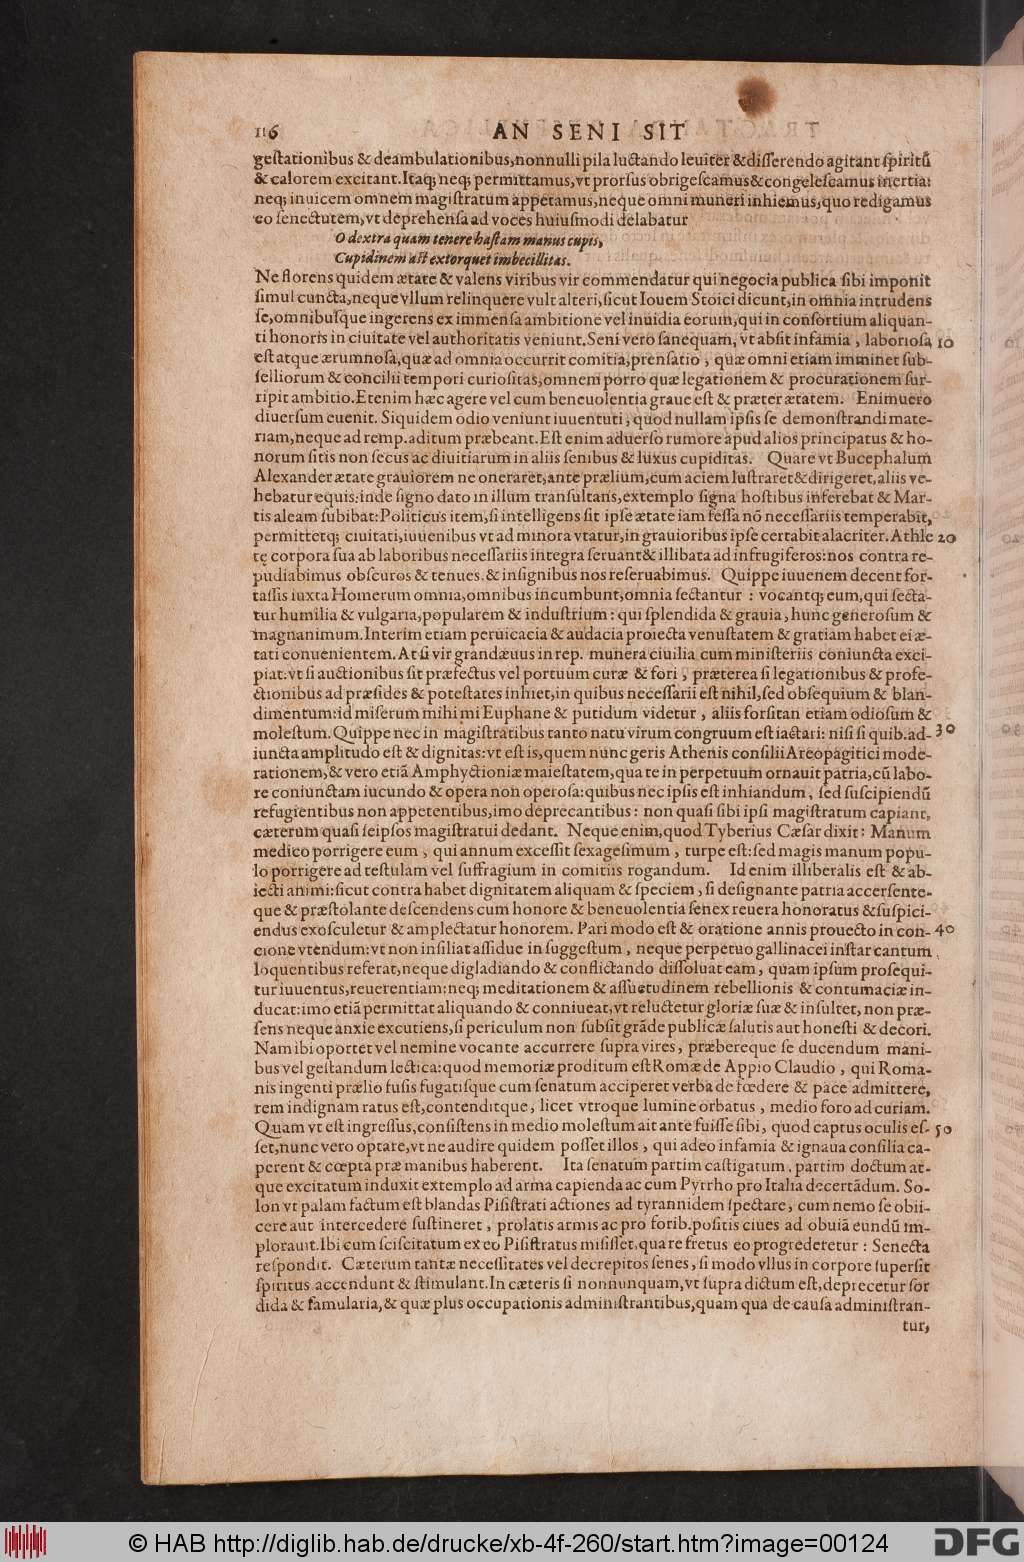 116 AN SENI SIT
gestationibus & deambulationibus, nonnulli pila luctando leuiter & disserendo agitant spiritũ
& calorem excitant. Itaq; neq; permittamus, vt prorsus obrigescamus & congelescamus inertia:
neq; inuicem omnem magistratum appetamus, neque omni muneri inhiemus, quo redigamus
eo senectutem, vt deprehensa ad voces huiusmodi delabatur
O dextra quam tenere hastam manus cupis,
Cupidinem ast extorquet imbecillitas.
Ne florens quidem ætate & valens viribus vir commendatur qui negocia publica sibi imponit
simul cuncta, neque vllum relinquere vult alteri, sicut Iouem Stoici dicunt, in omnia intrudens
se, omnibusque ingerens ex immensa ambitione vel inuidia eorum, qui in consortium aliquan-
ti honoris in ciuitate vel authoritatis veniunt. Seni vero sanequam, vt absit infamia, laboriosa 10
est atque ærumnosa, quæ ad omnia occurrit comitia, prensatio, quæ omni etiam imminet sub-
selliorum & concilii tempori curiositas, omnem porro quæ legationem & procurationem sur-
ripit ambitio. Etenim hæc agere vel cum beneuolentia graue est & præter ætatem. Enimuero
diuersum euenit. Siquidem odio veniunt iuuentuti, quod nullam ipsis se demonstrandi mate-
riam, neque ad remp. aditum præbeant. Est enim aduerso rumore apud alios principatus & ho-
norum sitis non secus ac diuitiarum in aliis senibus & luxus cupiditas. Quare vt Bucephalum
Alexander ætate grauiorem ne oneraret, ante prælium, cum aciem lustraret & dirigeret, aliis ve-
hebatur equis: inde signo dato in illum transultans, extemplo signa hostibus inferebat & Mar-
tis aleam subibat: Politicus item, si intelligens sit ipse ætate iam fessa nõ necessariis temperabit,
permittetq; ciuitati, iuuenibus vt ad minora vtatur, in grauioribus ipse certabit alacriter. Athle 20
tę corpora sua ab laboribus necessariis integra seruant & illibata ad infrugiferos: nos contra re-
pudiabimus obscuros & tenues. & insignibus nos reseruabimus. Quippe iuuenem decent for-
tassis iuxta Homerum omnia, omnibus incumbunt, omnia sectantur: vocantq; eum, qui secta-
tur humilia & vulgaria, popularem & industrium: qui splendida & grauia, hunc generosum &
magnanimum. Interim etiam peruicacia & audacia proiecta venustatem & gratiam habet ei æ-
tati conuenientem. At si vir grandæuus in rep. munera ciuilia cum ministeriis coniuncta exci-
piat: vt si auctionibus sit præfectus vel portuum curæ & fori, præterea si legationibus & profe-
ctionibus ad præsides & potestates inhiet, in quibus necessarii est nihil, sed obsequium & blan-
dimentum: id miserum mihi mi Euphane & putidum videtur, aliis forsitan etiam odiosum &
molestum. Quippe nec in magistratibus tanto natu virum congruum est iactari: nisi si quib. ad- 30
iuncta amplitudo est & dignitas: vt est is, quem nunc geris Athenis consilii Areopagitici mode-
rationem, & vero etiã Amphyctioniæ maiestatem, qua te in perpetuum ornauit patria, cũ labo-
re coniunctam iucundo & opera non operosa: quibus nec ipsis est inhiandum, sed suscipiendũ
refugientibus non appetentibus, imo deprecantibus: non quasi sibi ipsi magistratum capiant,
cæterum quasi seipsos magistratui dedant. Neque enim, quod Tyberius Cæsar dixit: Manum
medico porrigere eum, qui annum excessit sexagesimum, turpe est: sed magis manum popu-
lo porrigere ad testulam vel suffragium in comitiis rogandum. Id enim illiberalis est & ab-
iecti animi: sicut contra habet dignitatem aliquam & speciem, si designante patria accersente-
que & præstolante descendens cum honore & beneuolentia senex reuera honoratus & suspici-
endus exosculetur & amplectatur honorem. Pari modo est & oratione annis prouecto in con- 40
cione vtendum: vt non insiliat assidue in suggestum, neque perpetuo gallinacei instar cantum
loquentibus referat, neque digladiando & conflictando dissoluat eam, quam ipsum prosequi-
tur iuuentus, reuerentiam: neq; meditationem & assuetudinem rebellionis & contumaciæ in-
ducat: imo etiã permittat aliquando & conniueat, vt reluctetur gloriæ suæ & insultet, non præ-
sens neque anxie excutiens, si periculum non subsit grãde publicæ salutis aut honesti & decori.
Nam ibi oportet vel nemine vocante accurrere supra vires, præbereque se ducendum mani-
bus vel gestandum lectica: quod memoriæ proditum est Romæ de Appio Claudio, qui Roma-
nis ingenti prælio fusis fugatisque cum senatum acciperet verba de fœdere & pace admittere,
rem indignam ratus est, contenditque, licet vtroque lumine orbatus, medio foro ad curiam.
Quam vt est ingressus, consistens in medio molestum ait ante fuisse sibi, quod captus oculis es- 50
set, nunc vero optare, vt ne audire quidem posset illos, qui adeo infamia & ignaua consilia ca-
perent & cœpta præ manibus haberent. Ita senatum partim castigatum, partim doctum at-
que excitatum induxit extemplo ad arma capienda ac cum Pyrrho pro Italia decertãdum. So-
lon vt palam factum est blandas Pisistrati actiones ad tyrannidem spectare, cum nemo se obii-
cere aut intercedere sustineret, prolatis armis ac pro forib. positis ciues ad obuiã eundũ im-
plorauit. Ibi cum sciscitatum ex eo Pisistratus misisset, qua re fretus eo progrederetur: Senecta
respondit. Cæterum tantæ necessitates vel decrepitos senes, si modo vllus in corpore supersit
spiritus accendunt & stimulant. In cæteris si nonnunquam, vt supra dictum est, deprecetur sor
dida & famularia, & quæ plus occupationis administrantibus, quam qua de causa administran-
tur,
© HAB http://diglib.hab.de/drucke/xb-4f-260/start.htm?image=00124 DFG